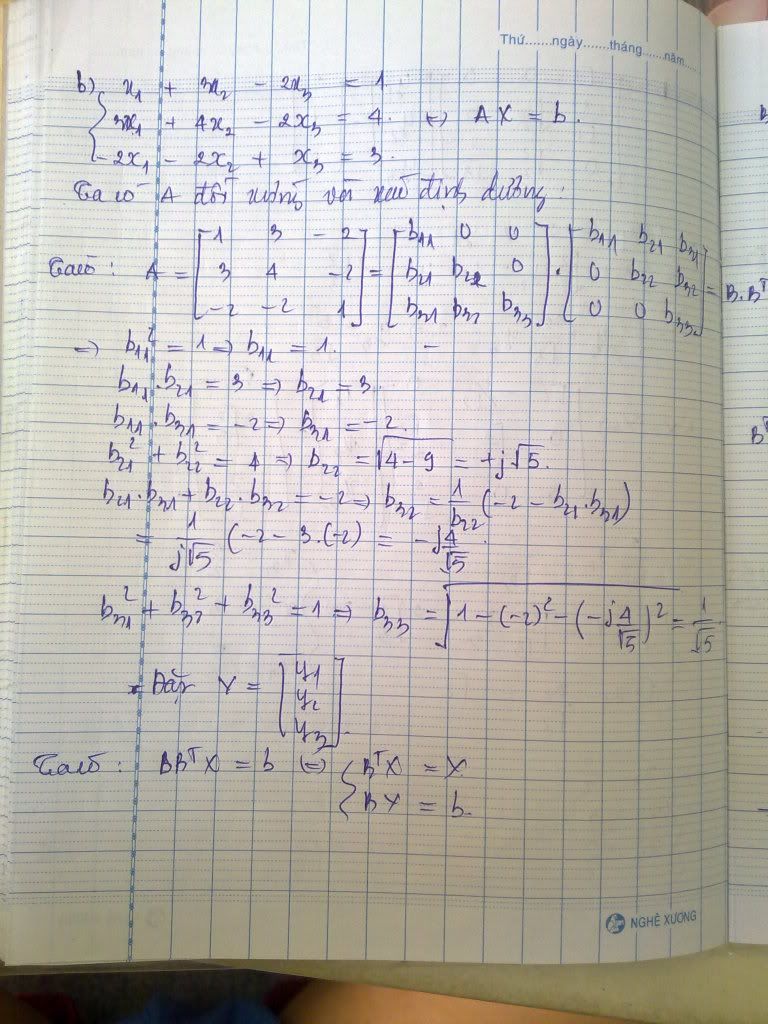 Thứ.......ngày.......tháng.......năm....
b) { x₁ + 3x₂ - 2x₃ = 1.
3x₁ + 4x₂ - 2x₃ = 4. ⇔ AX = b.
-2x₁ - 2x₂ + x₃ = 3.
Ta có A đối xứng và xác định dương:
Ta có: A = [1 3 -2; 3 4 -2; -2 -2 1] = [b₁₁ 0 0; b₂₁ b₂₂ 0; b₃₁ b₃₂ b₃₃] . [b₁₁ b₂₁ b₃₁; 0 b₂₂ b₃₂; 0 0 b₃₃] = B.Bᵀ
⇒ b₁₁² = 1 ⇒ b₁₁ = 1.
b₁₁.b₂₁ = 3 ⇒ b₂₁ = 3.
b₁₁.b₃₁ = -2 ⇒ b₃₁ = -2.
b₂₁² + b₂₂² = 4 ⇒ b₂₂ = √(4-9) = +j√5.
b₂₁.b₃₁ + b₂₂.b₃₂ = -2 ⇒ b₃₂ = 1/b₂₂ (-2 - b₂₁.b₃₁)
= 1/(j√5) (-2 - 3.(-2) = -j4/√5.
b₃₁² + b₃₂² + b₃₃² = 1 ⇒ b₃₃ = √(1 - (-2)² - (-j4/√5)²) = 1/√5
* Đặt Y = [y₁; y₂; y₃].
Ta có: BBᵀX = b ⇔ { BᵀX = Y
BY = b.
NGHÊ XƯƠNG